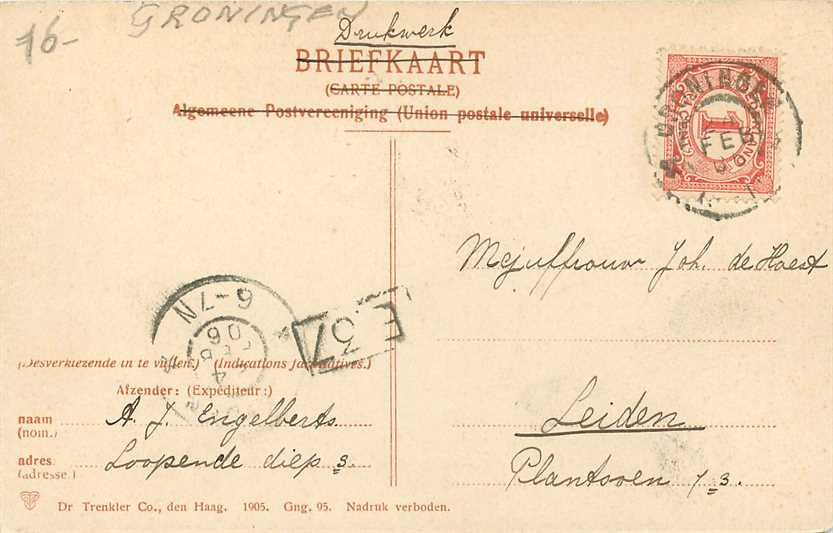 16- GRONINGEN
Drukwerk
BRIEFKAART
(CARTE POSTALE)
Algemeene Postvereeniging (Union postale universelle)
GRONINGEN
FEB
1
Mejuffrouw Joh. de Haest
6-7N
06
FEB
4
E 37
(Desverkiezende in te vullen.) (Indications facultatives.)
Afzender: (Expéditeur:)
naam A. J. Engelberts
(nom.)
adres Loopende diep 3.
(adresse.)
Leiden
Plantsoen 73.
Dr Trenkler Co., den Haag. 1905. Gng. 95. Nadruk verboden.